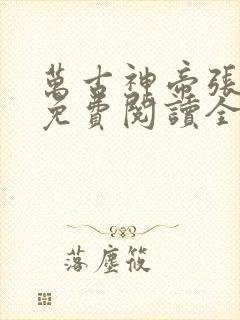 萬古神帝張
免費閱讀全
落塵筱